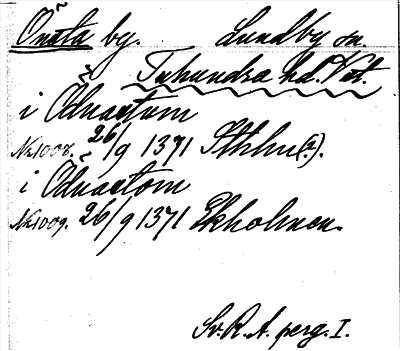 Onsta by. Lundby sn.
Tuhundra hd. Vstm.
i Odnastom
Nr 1008. 26/9 1371 Sthlm(?).
i Odnastom
Nr 1009. 26/9 1371 Ekholmen.
Sv. R. A. perg. I.